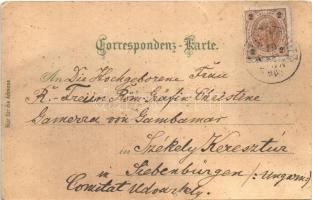 Correspondenz-Karte.
An Die Hochgeborene Frau
R. Freiin Gräfin Christine
Gamerra von Gambamar
in Székely Keresztúr
in Siebenbürgen /: Ungarn:/
Comitat Udvarhely.
Nur für die Adresse